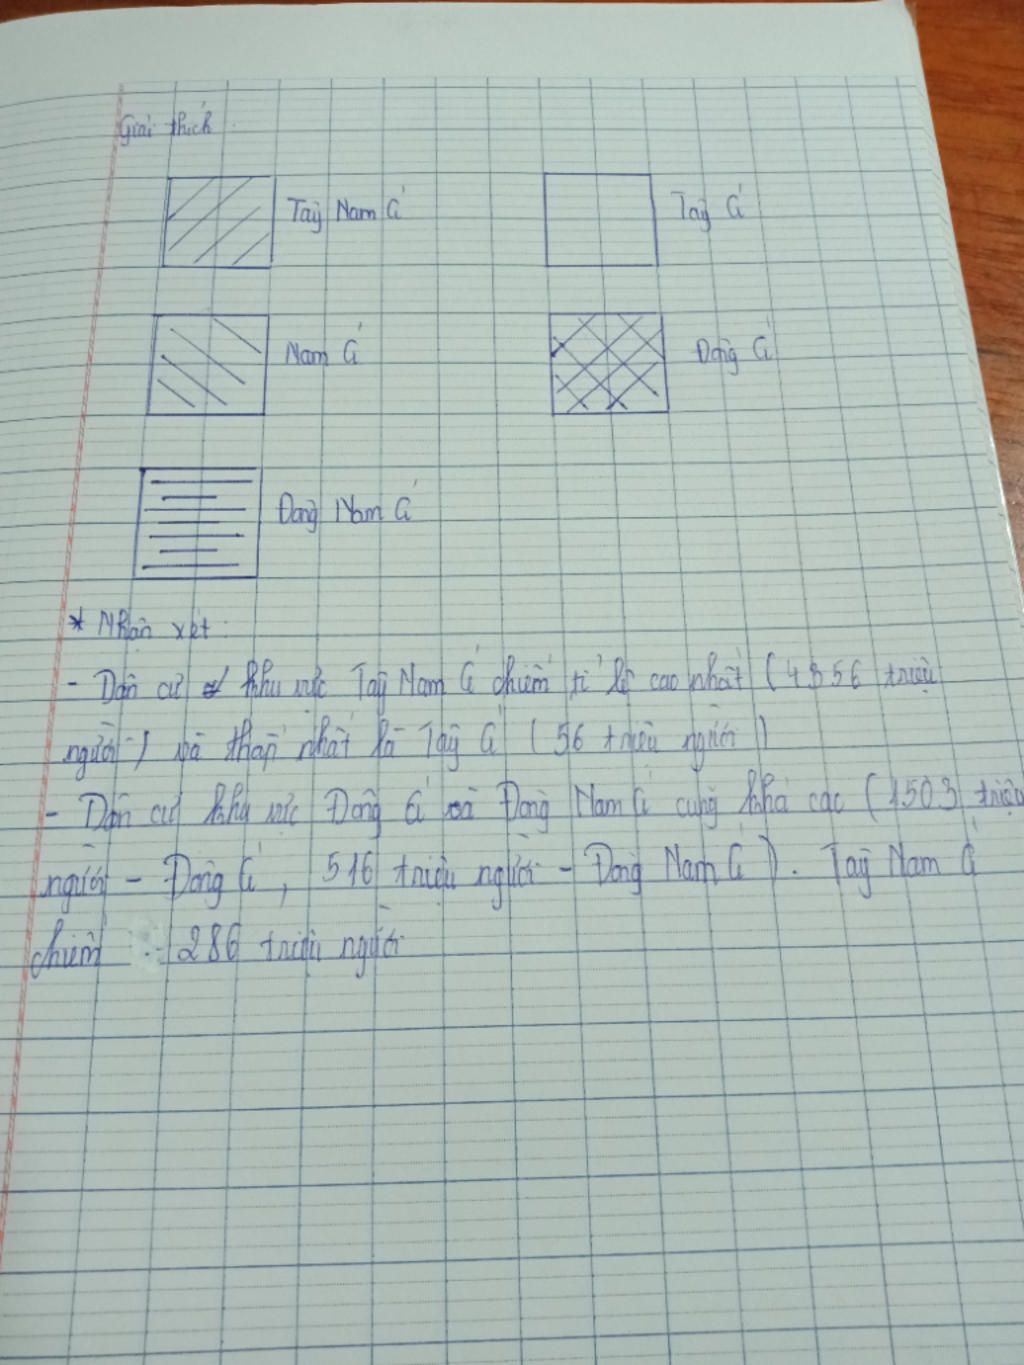 Giải thích
Tây Nam Á
Tây Á
Nam Á
Đông Á
Đông Nam Á
* Nhận xét:
- Dân cư khu vực Tây Nam Á chiếm tỉ lệ cao nhất (1356 triệu
người) và thấp nhất là Tây Á (56 triệu người)
- Dân cư khu vực Đông Á và Đông Nam Á cũng khá cao (1503 triệu
người - Đông Á, 516 triệu người - Đông Nam Á). Tây Nam Á
chiếm 286 triệu người